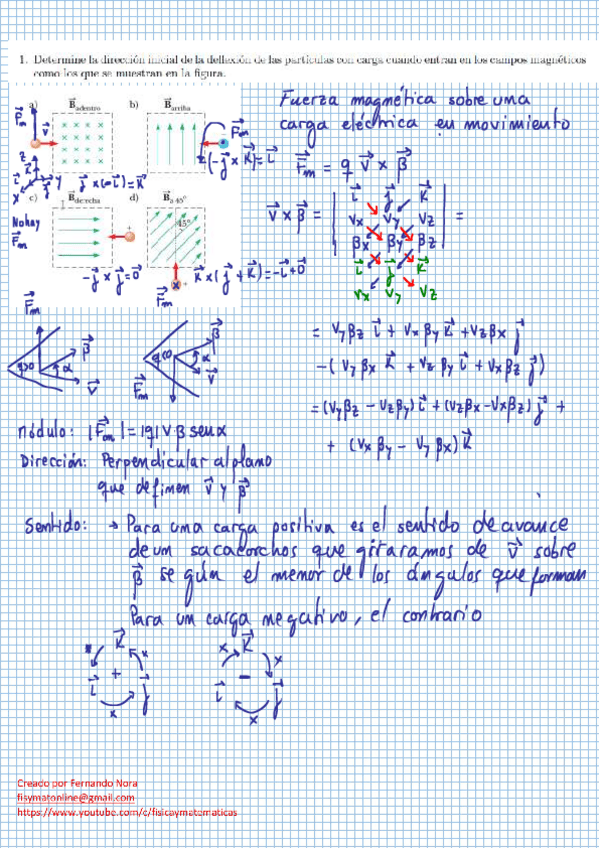 1. Determine la dirección inicial de la deflexión de las partículas con carga cuando entran en los campos magnéticos
como los que se muestran en la figura.
a) B⃗adentro b) B⃗arriba
F⃗m V⃗ F⃗m
Z K⃗ i⃗ x y j⃗ x(-i⃗)=K⃗ (-j⃗ x K⃗)= i⃗
c) B⃗derecha d) B⃗a 45°
No hay F⃗m
45°
-j⃗ x j⃗ = 0⃗
K⃗ x (j⃗ + K⃗)= -i⃗+0⃗
F⃗m
Fuerza magnética sobre una
carga eléctrica en movimiento
F⃗m = q V⃗ x B⃗
V⃗ x B⃗ = | i⃗ j⃗ K⃗ |
Vx Vy Vz =
Bx By Bz
i⃗ j⃗ K⃗
Vx Vy Vz
= VyBz i⃗ + VxBy K⃗ + VzBx j⃗
-( VyBx K⃗ + VzBy i⃗ + VxBz j⃗ )
=(VyBz - VzBy) i⃗ + (VzBx - VxBz) j⃗ +
+ (VxBy - VyBx) K⃗
F⃗m q>0 B⃗ α V⃗
q<0 B⃗ α V⃗ F⃗m
módulo: |F⃗m| = |q| V·B senα
Dirección: Perpendicular al plano
que definen V⃗ y B⃗
Sentido: → Para una carga positiva es el sentido de avance
de un sacacorchos que giraramos de V⃗ sobre
B⃗ según el menor de los ángulos que forman
Para un carga negativo, el contrario
K⃗ x i⃗ + j⃗ x
x K⃗ x i⃗ - j⃗ x
Creado por Fernando Nora
fisymatonline@gmail.com
https://www.youtube.com/c/fisicaymatematicas